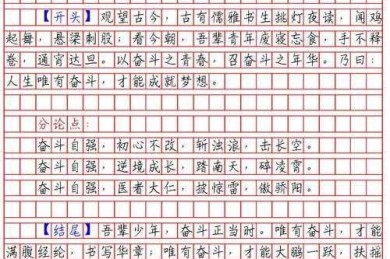 【开头】观望古今，古有儒雅书生挑灯夜读，闻鸡
起舞，悬梁刺股；看今朝，吾辈青年废寝忘食，手不释
卷，通宵达旦。以奋斗之青春，召奋斗之年华。乃曰：
人生唯有奋斗，才能成就梦想。
分论点：
奋斗自强，初心不改，斩浊浪，击长空。
奋斗自强，逆境成长，踏南天，碎凌霄。
奋斗自强，医者大仁，披惊雷，傲骄阳。
【结尾】吾辈少年，奋斗正当时。唯有奋斗，才能
满腹经纶，书写华章；唯有奋斗，才能大鹏一跃，扶摇